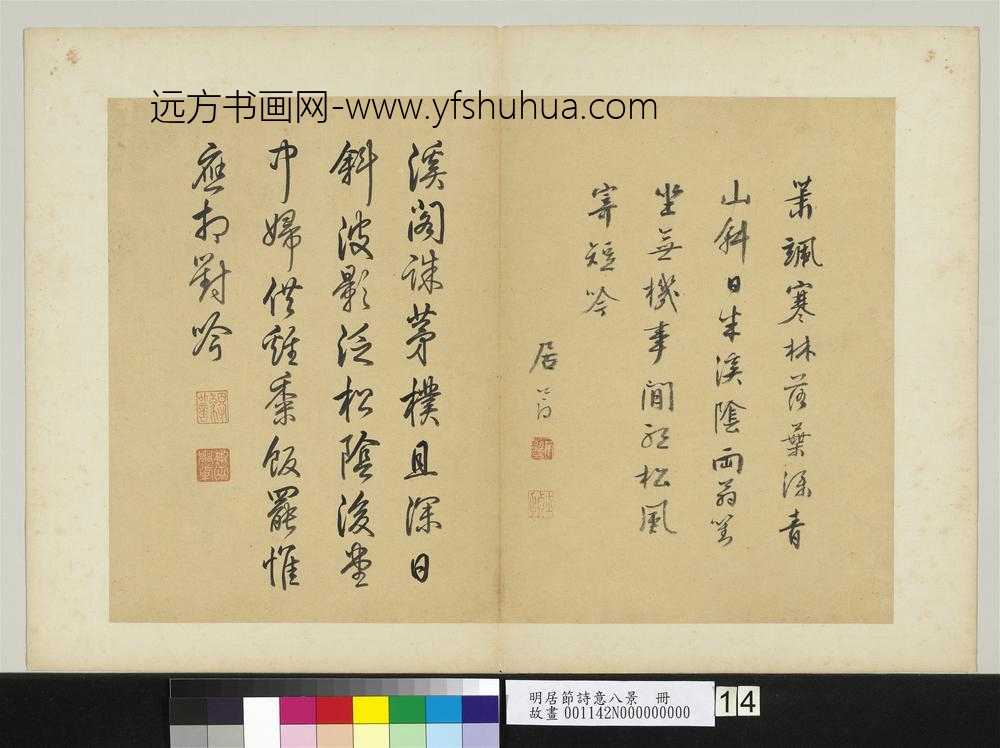 远方书画网-www.yfshuhua.com
蕭颯寒林落葉深青
山斜日半溪陰兩翁對
坐無機事閒聽松風
寄短吟
居節
溪閣誅茅樸且深日
斜波影泛松陰後堂
中婦供雞黍飯罷惟
應相對吟
明居節詩意八景 冊
故畫 001142N000000000
14